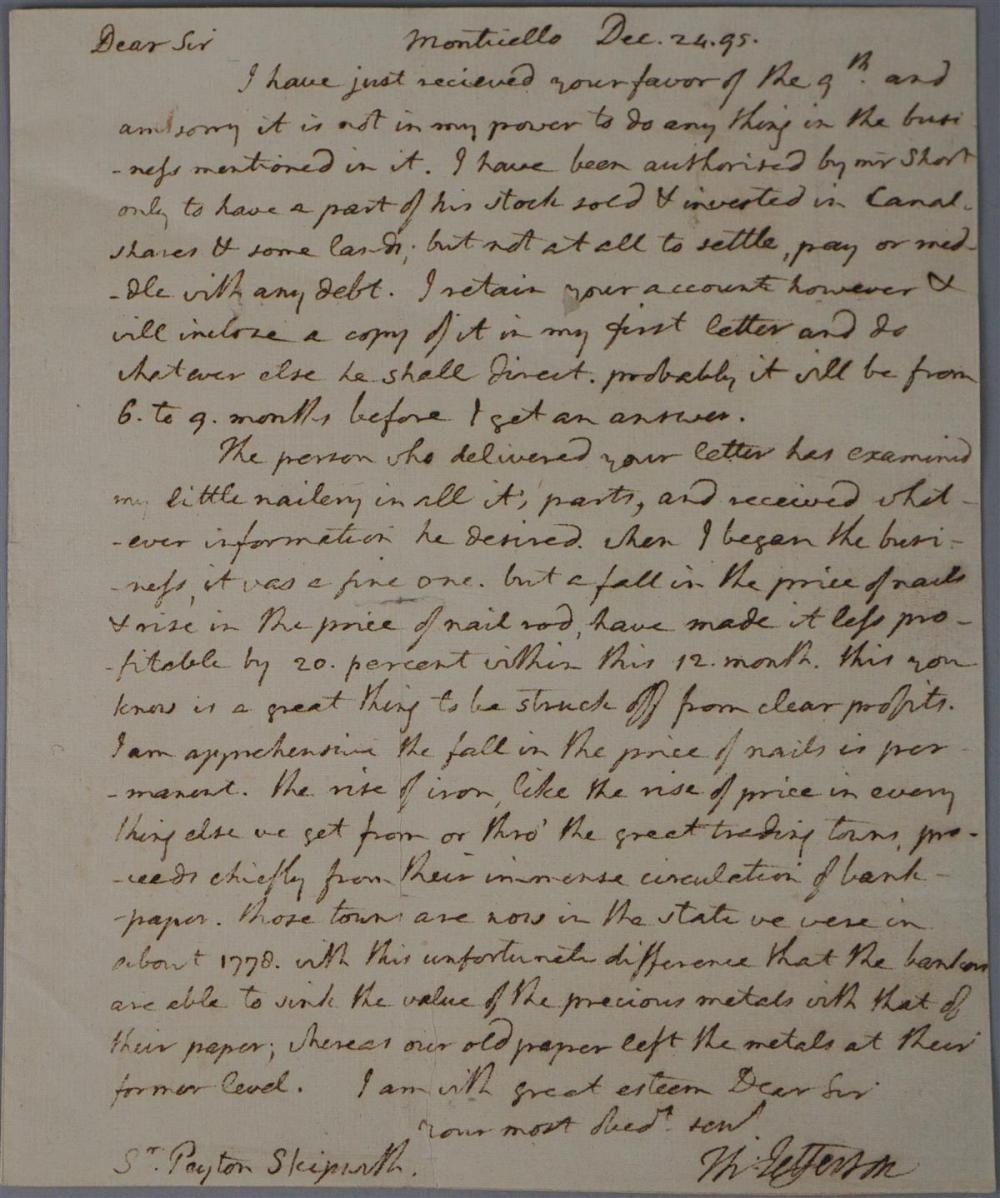 Dear Sir Monticello Dec. 24. 95.
I have just recieved your favor of the 9th. and
am sorry it is not in my power to do any thing in the busi
-ness mentioned in it. I have been authorised by mr Short
only to have a part of his stock sold & invested in Canal-
shares & some lands; but not at all to settle, pay or med-
-dle with any debt. I retain your account however &
will inclose a copy of it in my first letter and do
whatever else he shall direct. probably it will be from
6. to 9. months before I get an answer.
The person who delivered your letter has examined
my little nailery in all it's parts, and received what-
-ever information he desired. when I began the busi-
-ness, it was a fine one. but a fall in the price of nails
& rise in the price of nail rod, have made it less pro-
-fitable by 20. percent within this 12. month. this you
know is a great thing to be struck off from clear profits.
I am apprehensive the fall in the price of nails is per-
-manent. the rise of iron, like the rise of price in every
thing else we get from or thro' the great trading towns, pro-
-ceeds chiefly from their immense circulation of bank-
-paper. those towns are now in the state we were in
about 1778. with this unfortunate difference that the bankers
are able to sink the value of the precious metals with that of
their paper; whereas our old paper left the metals at their
former level. I am with great esteem Dear Sir
your most obedt. servt
Sr. Payton Skipwith. Th: Jefferson